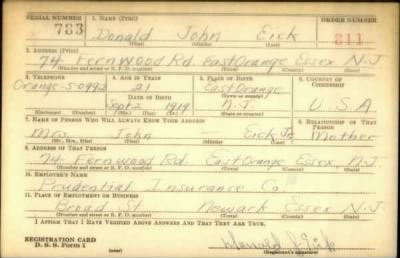 SERIAL NUMBER 1. NAME (Print) ORDER NUMBER
733 Donald John Eick 811
(First) (Middle) (Last)
2. ADDRESS (Print)
74 Fernwood Rd. East Orange Essex N.J.
(Number and street or R. F. D. number) (Town) (County) (State)
3. TELEPHONE 4. AGE IN YEARS 5. PLACE OF BIRTH 6. COUNTRY OF CITIZENSHIP
Orange-5-0992 21 East Orange
DATE OF BIRTH (Town or county)
Sept 2 1919 N.J. U.S.A
(Exchange) (Number) (Mo.) (Day) (Yr.) (State or country)
7. NAME OF PERSON WHO WILL ALWAYS KNOW YOUR ADDRESS 8. RELATIONSHIP OF THAT PERSON
Mrs. John — Eick Jr Mother
(Mr., Mrs., Miss) (First) (Middle) (Last)
9. ADDRESS OF THAT PERSON
74 Fernwood Rd. East Orange Essex N.J.
(Number and street or R. F. D. number) (Town) (County) (State)
10. EMPLOYER'S NAME
Prudential Insurance Co.
11. PLACE OF EMPLOYMENT OR BUSINESS
Broad St. Newark Essex N.J.
(Number and street or R. F. D. number) (Town) (County) (State)
I AFFIRM THAT I HAVE VERIFIED ABOVE ANSWERS AND THAT THEY ARE TRUE.
REGISTRATION CARD
D. S. S. Form 1 Donald J Eick
(Registrant's signature)